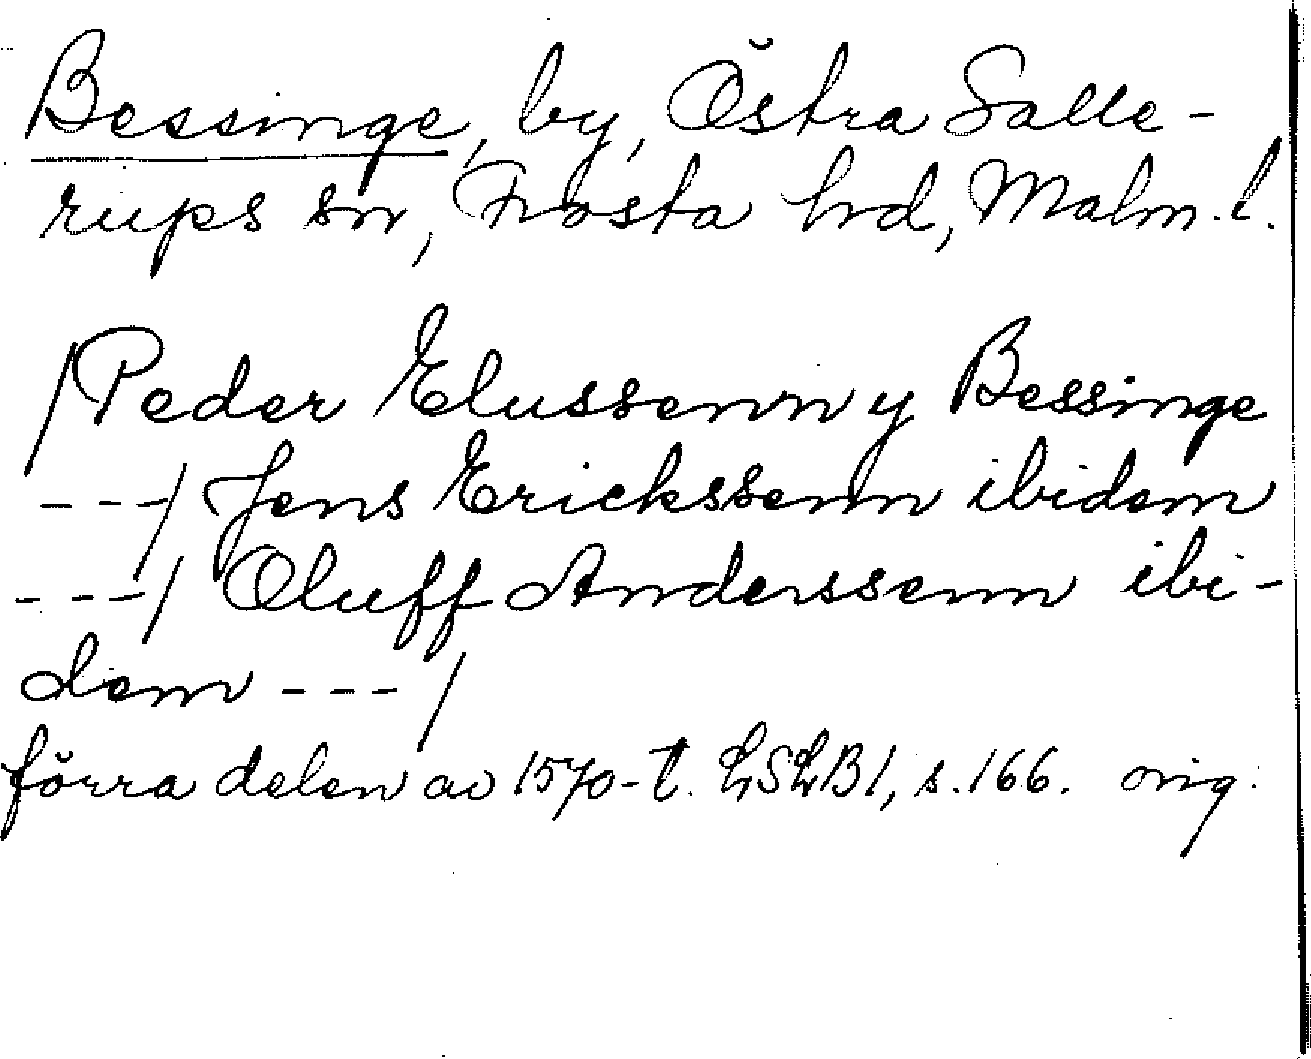 Bessinge, by, Östra Salle-
rups sn, Frosta hd, Malm. l.
/Peder Elussenn y Bessinge
---/ Jens Erickssenn ibidem
---/ Oluff Anderssenn ibi-
dem ---/
förra delen av 1570-t. LSLB1, s.166. orig.